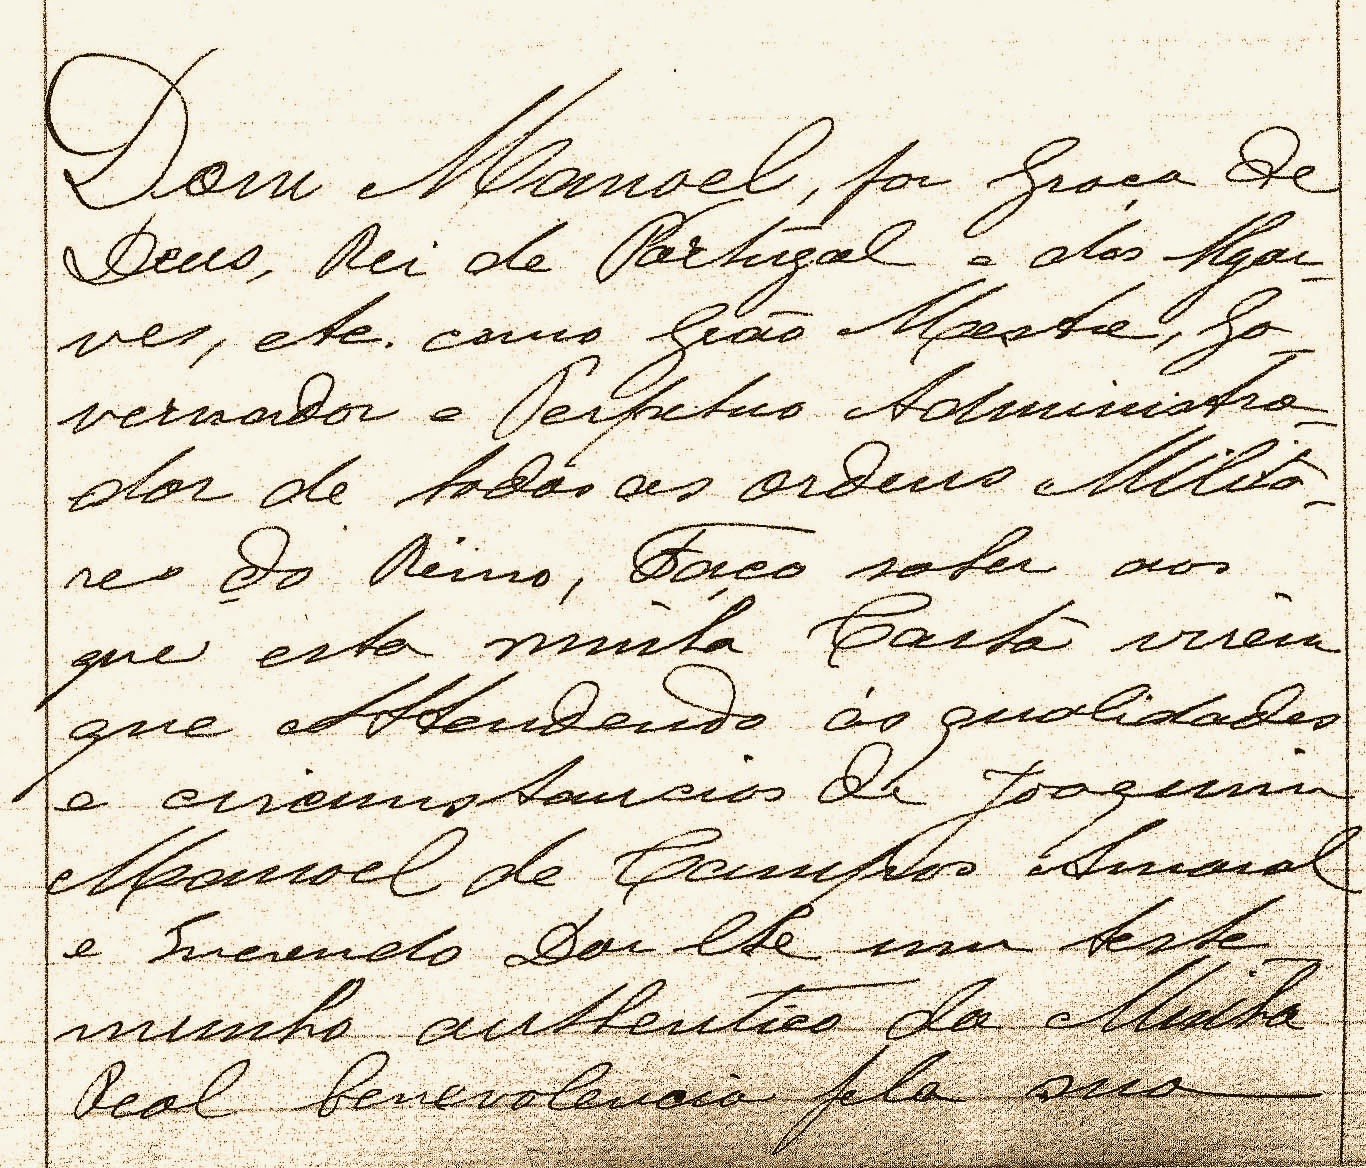 Dom Manoel, por Graça de
Deus, Rei de Portugal e dos Algar-
ves, etc. como Grão Mestre, Go-
vernador e Perpetuo Administra-
dor de todas as ordens Milita-
res do Reino, Faço saber aos
que esta minha Carta virem
que Attendendo ás qualidades
e circumstancias de Joaquim
Manoel de Campos Amaral
e Querendo Dar lhe um teste
munho authentico da Minha
Real benevolencia pla sua